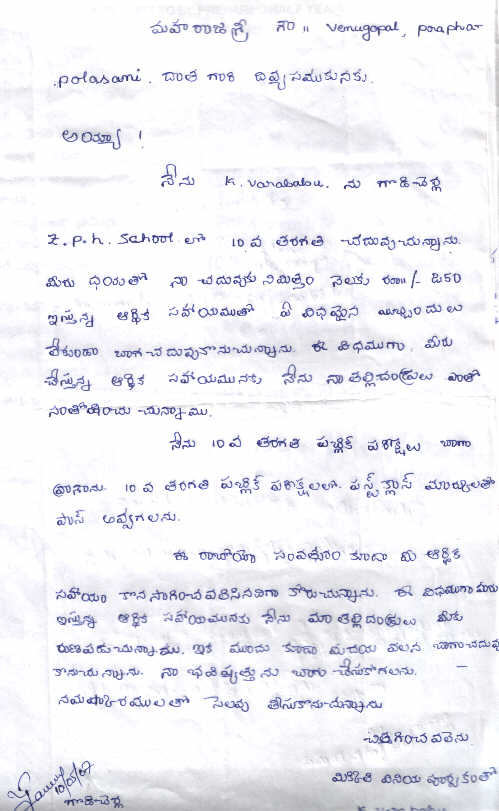 మహారాజశ్రీ గౌ॥ Venugopal, poraphar
polasani. దాత గారి దివ్య సముకునకు.
అయ్యా !
నేను K. varababu. ను గూడిచెర్ల
Z.P.h. School లో 10 వ తరగతి చదువుచున్నాను.
మీరు ధయతో నా చదువుకు నిమిత్తం నెలకు రూ॥/- 250
ఇస్తున్న ఆర్థిక సహాయముతో ఏ విధమైన యిబ్బందులు
లేకుండా బాగచదువుకొనుచున్నాను. ఈ విధముగా, మీరు
చేస్తున్న ఆర్థిక సహాయమునకు నేను నా తల్లిదండ్రులు ఎంతో
సంతోషించు చున్నాము.
నేను 10 వ తరగతి పబ్లిక్ పరీక్షలు బాగా
వ్రాసాను. 10 వ తరగతి పబ్లిక్ పరీక్షలలో. ఫస్ట్ క్లాస్ మార్కులతో
పాస్ అవ్వగలను.
ఈ రాబోయే సంవత్సరం కూడా మీ ఆర్థిక
సహాయం కొనసాగించవలసినదిగా కోరుచున్నాను. ఈ విధముగా మీరు
ఇస్తున్న ఆర్థిక సహాయమునకు నేను మా తల్లిదండ్రులు మీకు
రుణపడుచున్నాము. ఇక ముందు కూడా మీదయ వలన బాగా చదువు
కొనుచున్నాను. నా భవిష్యత్తును బాగా చేసుకోగలను.
నమష్కారములతో సెలవు తీసుకొనుచున్నాను
చిత్తగించవలెను.
మిక్కిలి వినియ పూర్వకంతో
10/05/07
గూడిచెర్ల